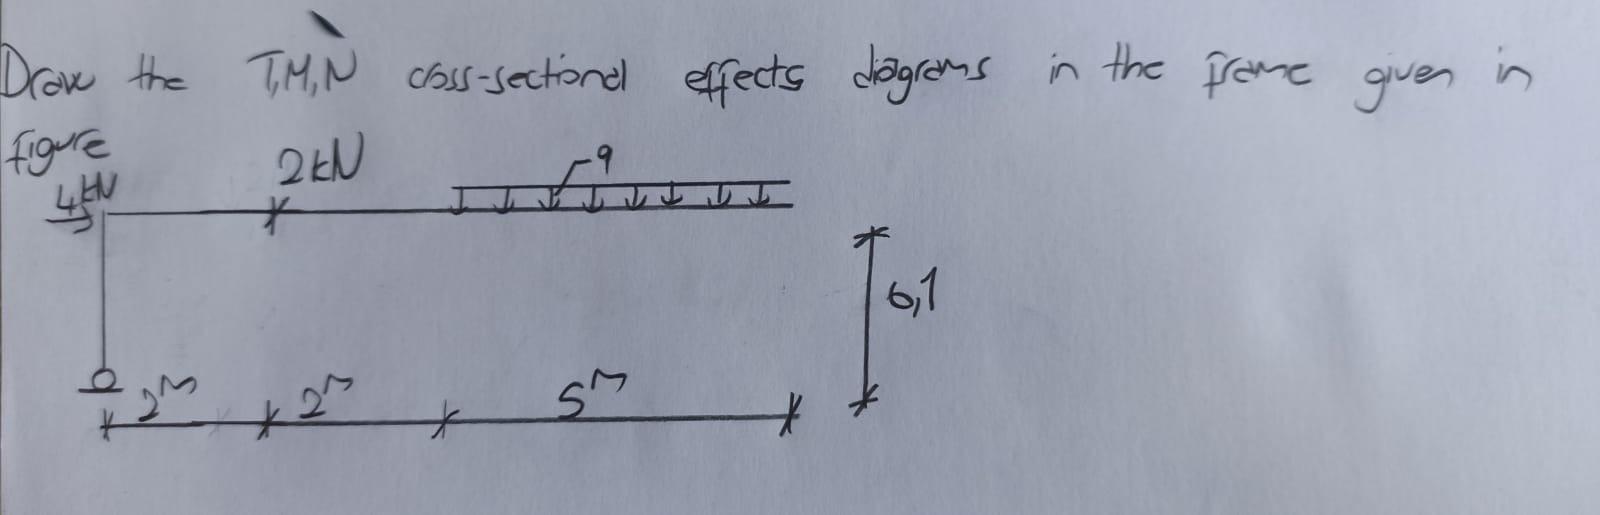 Draw the T,M,N cross-sectional effects diagrams in the frame given in
figure
4kN
2kN
q
6,1
2m 2m 5m